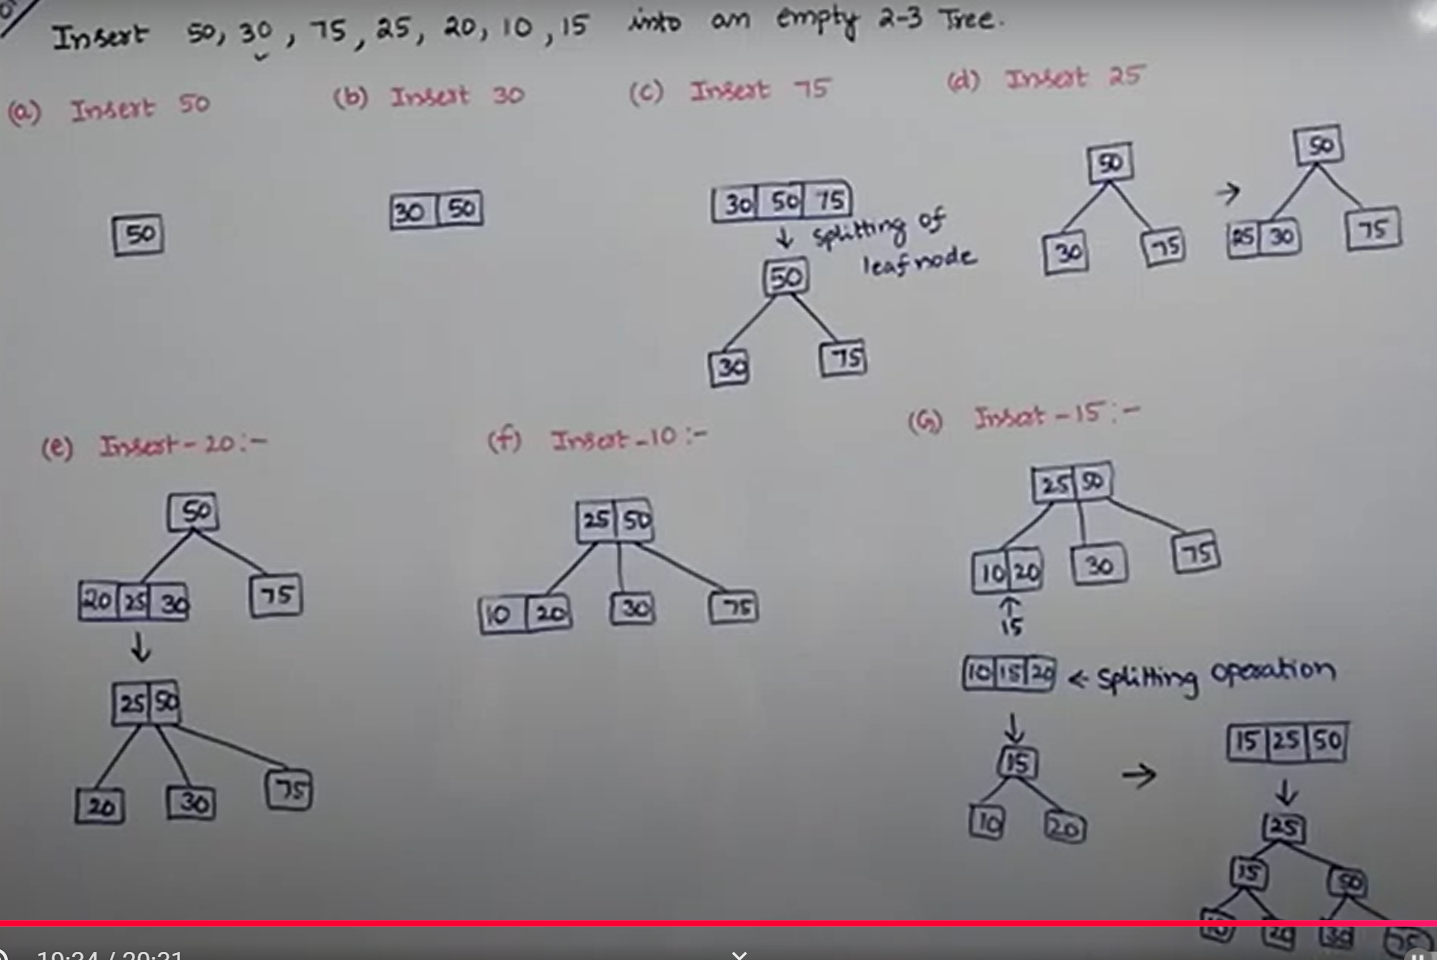 Insert 50, 30, 75, 25, 20, 10, 15 into an empty 2-3 Tree.
(a) Insert 50
50
(b) Insert 30
30 50
(c) Insert 75
30 50 75
↓ splitting of
leaf node
50
30 75
(d) Insert 25
50 → 50
30 75 25 30 75
(e) Insert-20:-
50
20 25 30 75
↓
25 50
20 30 75
(f) Insert-10:-
25 50
10 20 30 75
(G) Insert-15:-
25 50
10 20 30 75
↑
15
10 15 20 ← Splitting operation
↓
15
10 20
→
15 25 50
↓
25
15 50
10 20 30 75